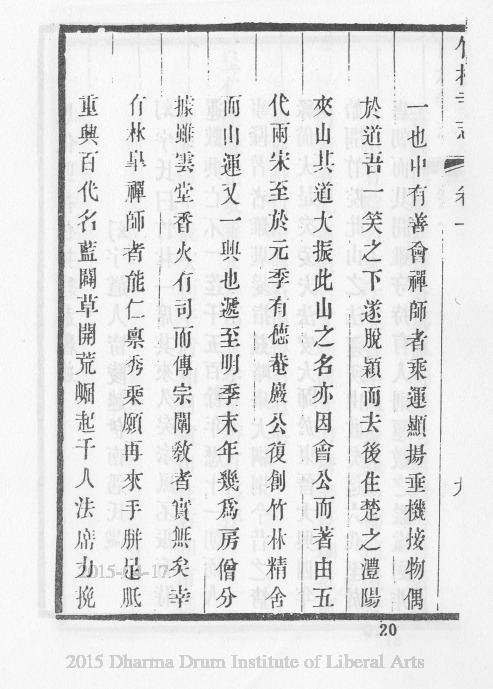 竹林寺志 卷一 九
一也中有善會禪師者乘運顯揚垂機接物偶
於道吾一笑之下遂脫穎而去後住楚之澧陽
夾山其道大振此山之名亦因會公而著由五
代兩宋至於元季有德菴嚴公復創竹林精舍
而山運又一興也遞至明季末年幾爲房僧分
據雖雲堂香火有司而傳宗闡敎者實無矣幸
有林皐禪師者能仁禀秀乘願再來手胼足胝
重興百代名藍闢草開荒崛起千人法席力挽
2015-04-17
20
2015 Dharma Drum Institute of Liberal Arts